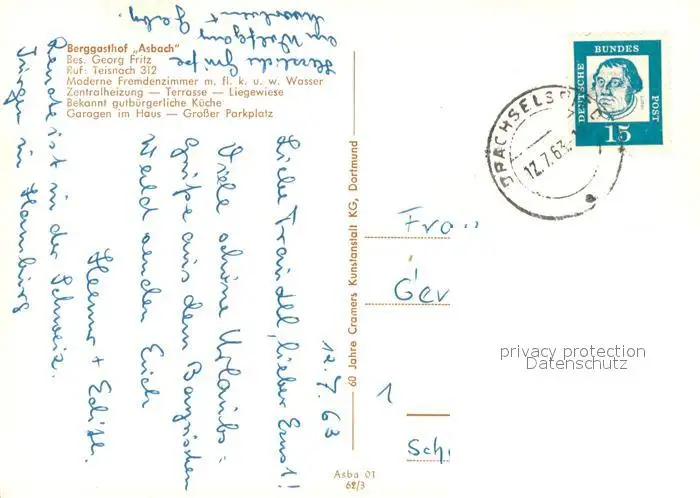 Berggasthof „Asbach"
Bes. Georg Fritz
Ruf: Teisnach 312
Moderne Fremdenzimmer m. fl. k. u. w. Wasser
Zentralheizung — Terrasse — Liegewiese
Bekannt gutbürgerliche Küche
Garagen im Haus — Großer Parkplatz
12.7.63
Liebe Traudel, lieber Ernst!
Viele schöne Urlaubs-
grüße aus dem Bayrischen
Wald senden Euch
Henner + Edith.
Renate ist in der Schweiz.
Jürgen in Hamburg
Herzliche Grüße
Wolfgang
60 Jahre Cramers Kunstanstalt KG, Dortmund
Asba 01
62/3
DEUTSCHE BUNDESPOST
15
12.7.63
Frau
Ger
1
Sch
privacy protection
Datenschutz